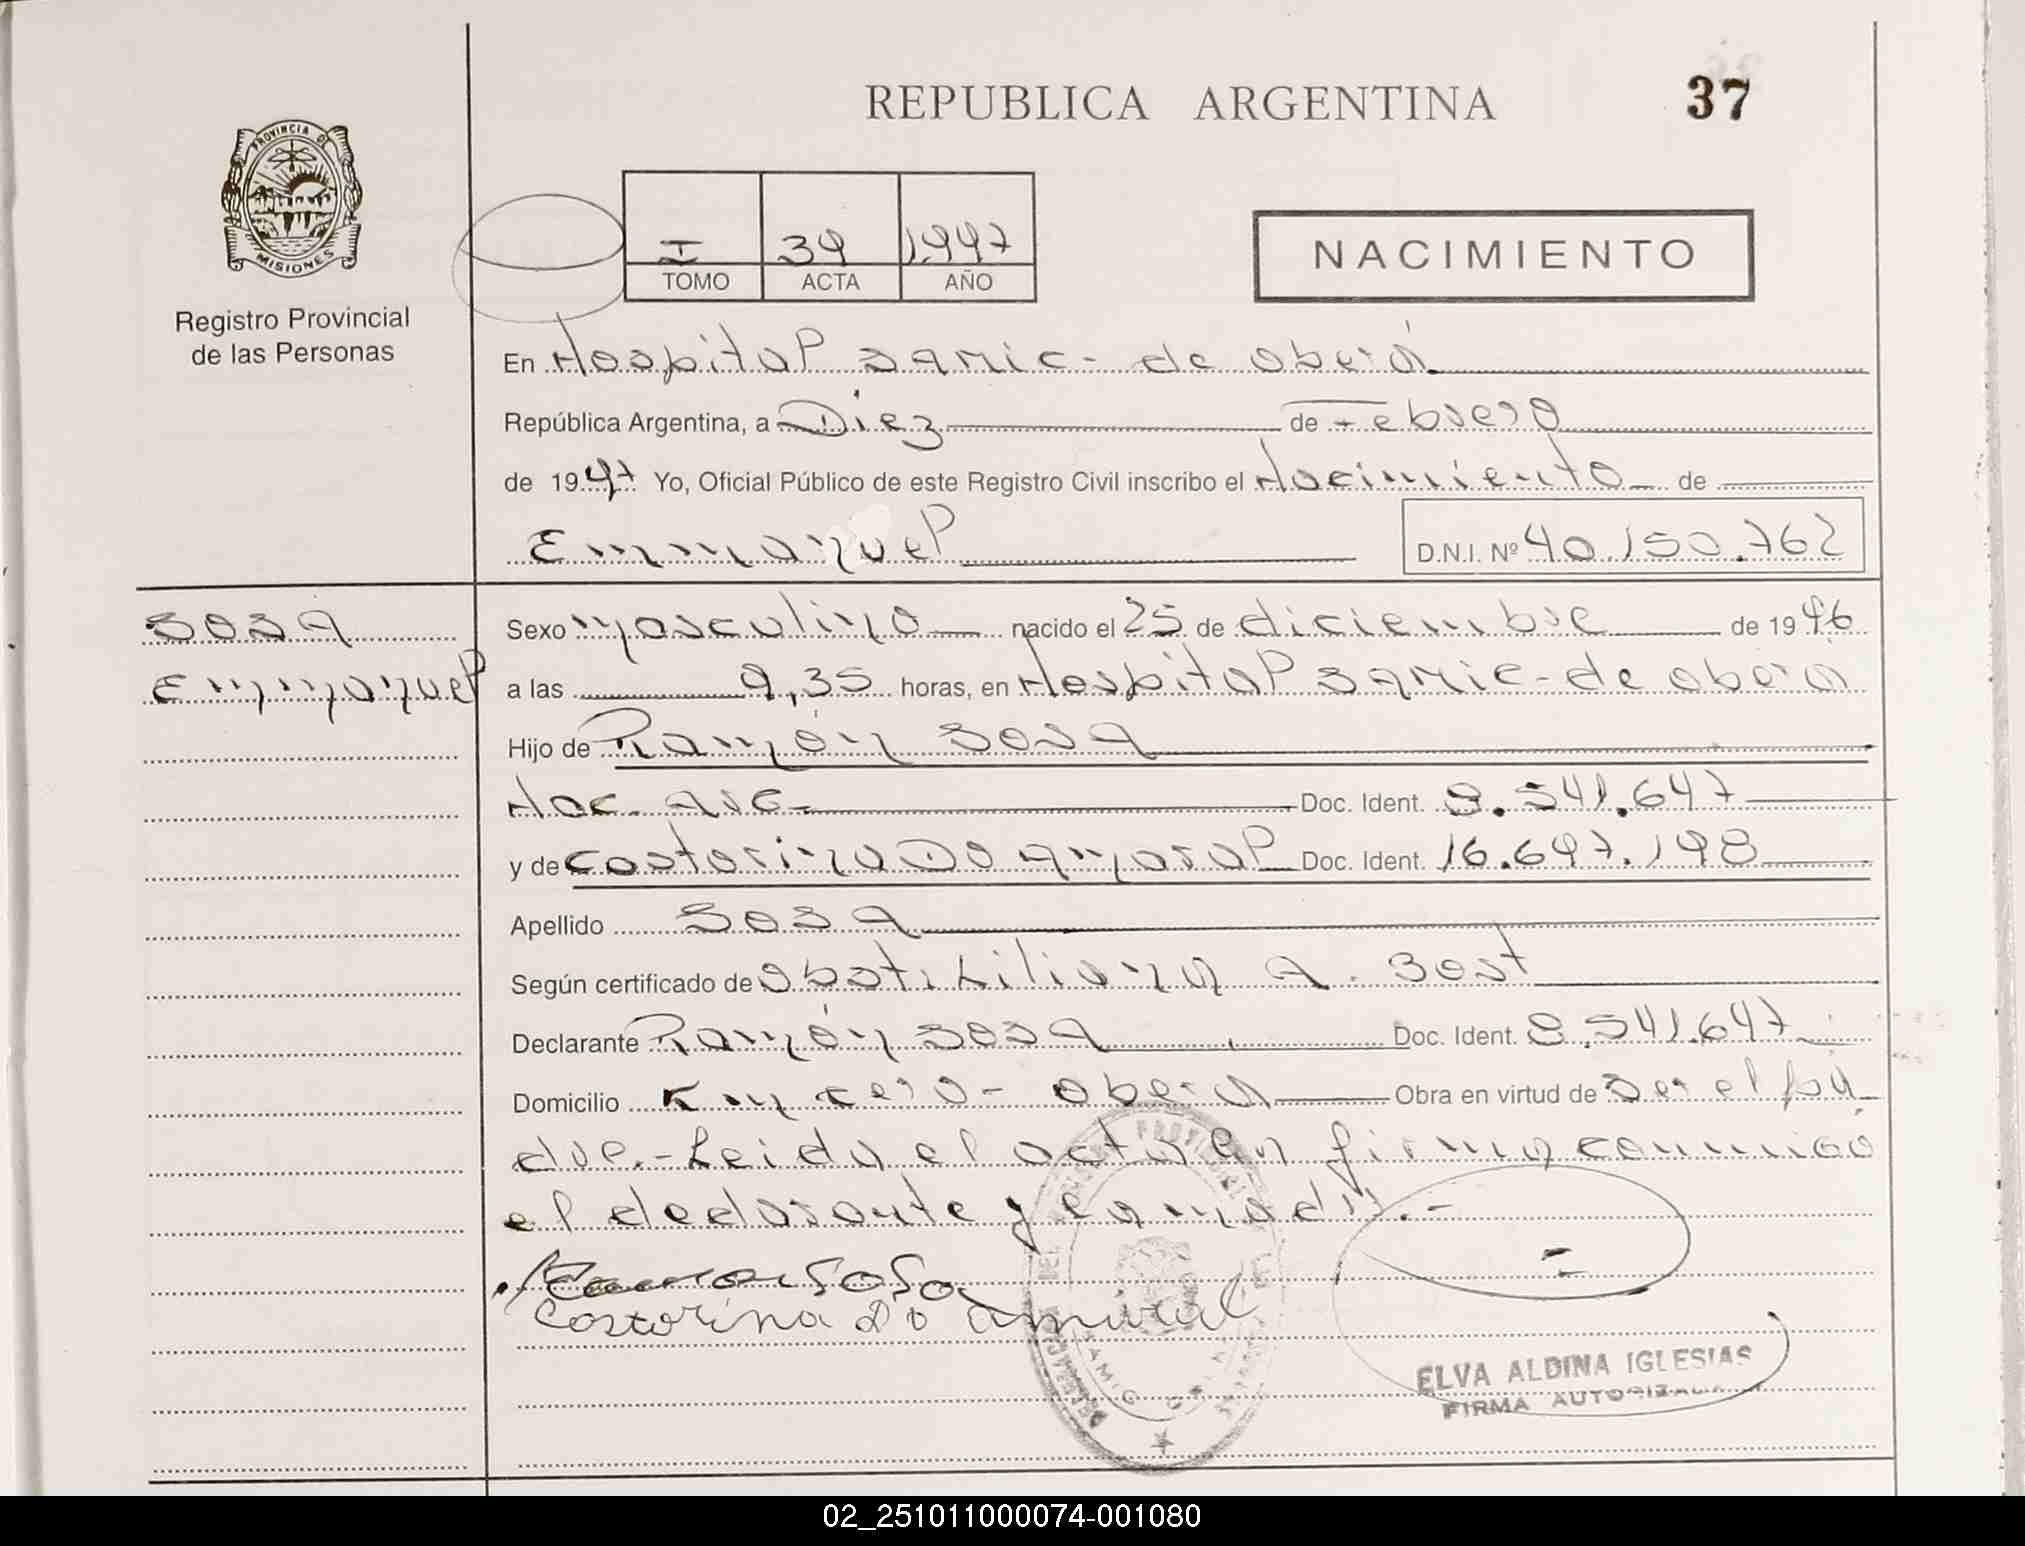 REPUBLICA ARGENTINA
37
PROVINCIA DE
MISIONES
Registro Provincial
de las Personas
I 39 1.997
TOMO ACTA AÑO
NACIMIENTO
En Hospital SAMIC - de Oberá
República Argentina, a Diez de Febrero
de 1997 Yo, Oficial Público de este Registro Civil inscribo el Nacimiento de
Emmanuel D.N.I. Nº 40.150.762
SOSA
Emmanuel
Sexo masculino nacido el 25 de diciembre de 1996
a las 9,35 horas, en Hospital SAMIC - de Oberá
Hijo de Ramón SOSA
Nac. arg. Doc. Ident. 8.541.647
y de Castorina Do Amaral Doc. Ident. 16.697.198
Apellido SOSA
Según certificado de Obst. Liliana A.
Declarante Ramón SOSA Doc. Ident. 8.541.647
Domicilio Km cero - Oberá Obra en virtud de ser el pa
dre.- Leida el acta la firma conmigo
el declarante y la madre.-
Ramon Sosa
Castorina Do Amaral
ELVA ALDINA IGLESIAS
FIRMA AUTORIZADA
02_251011000074-001080